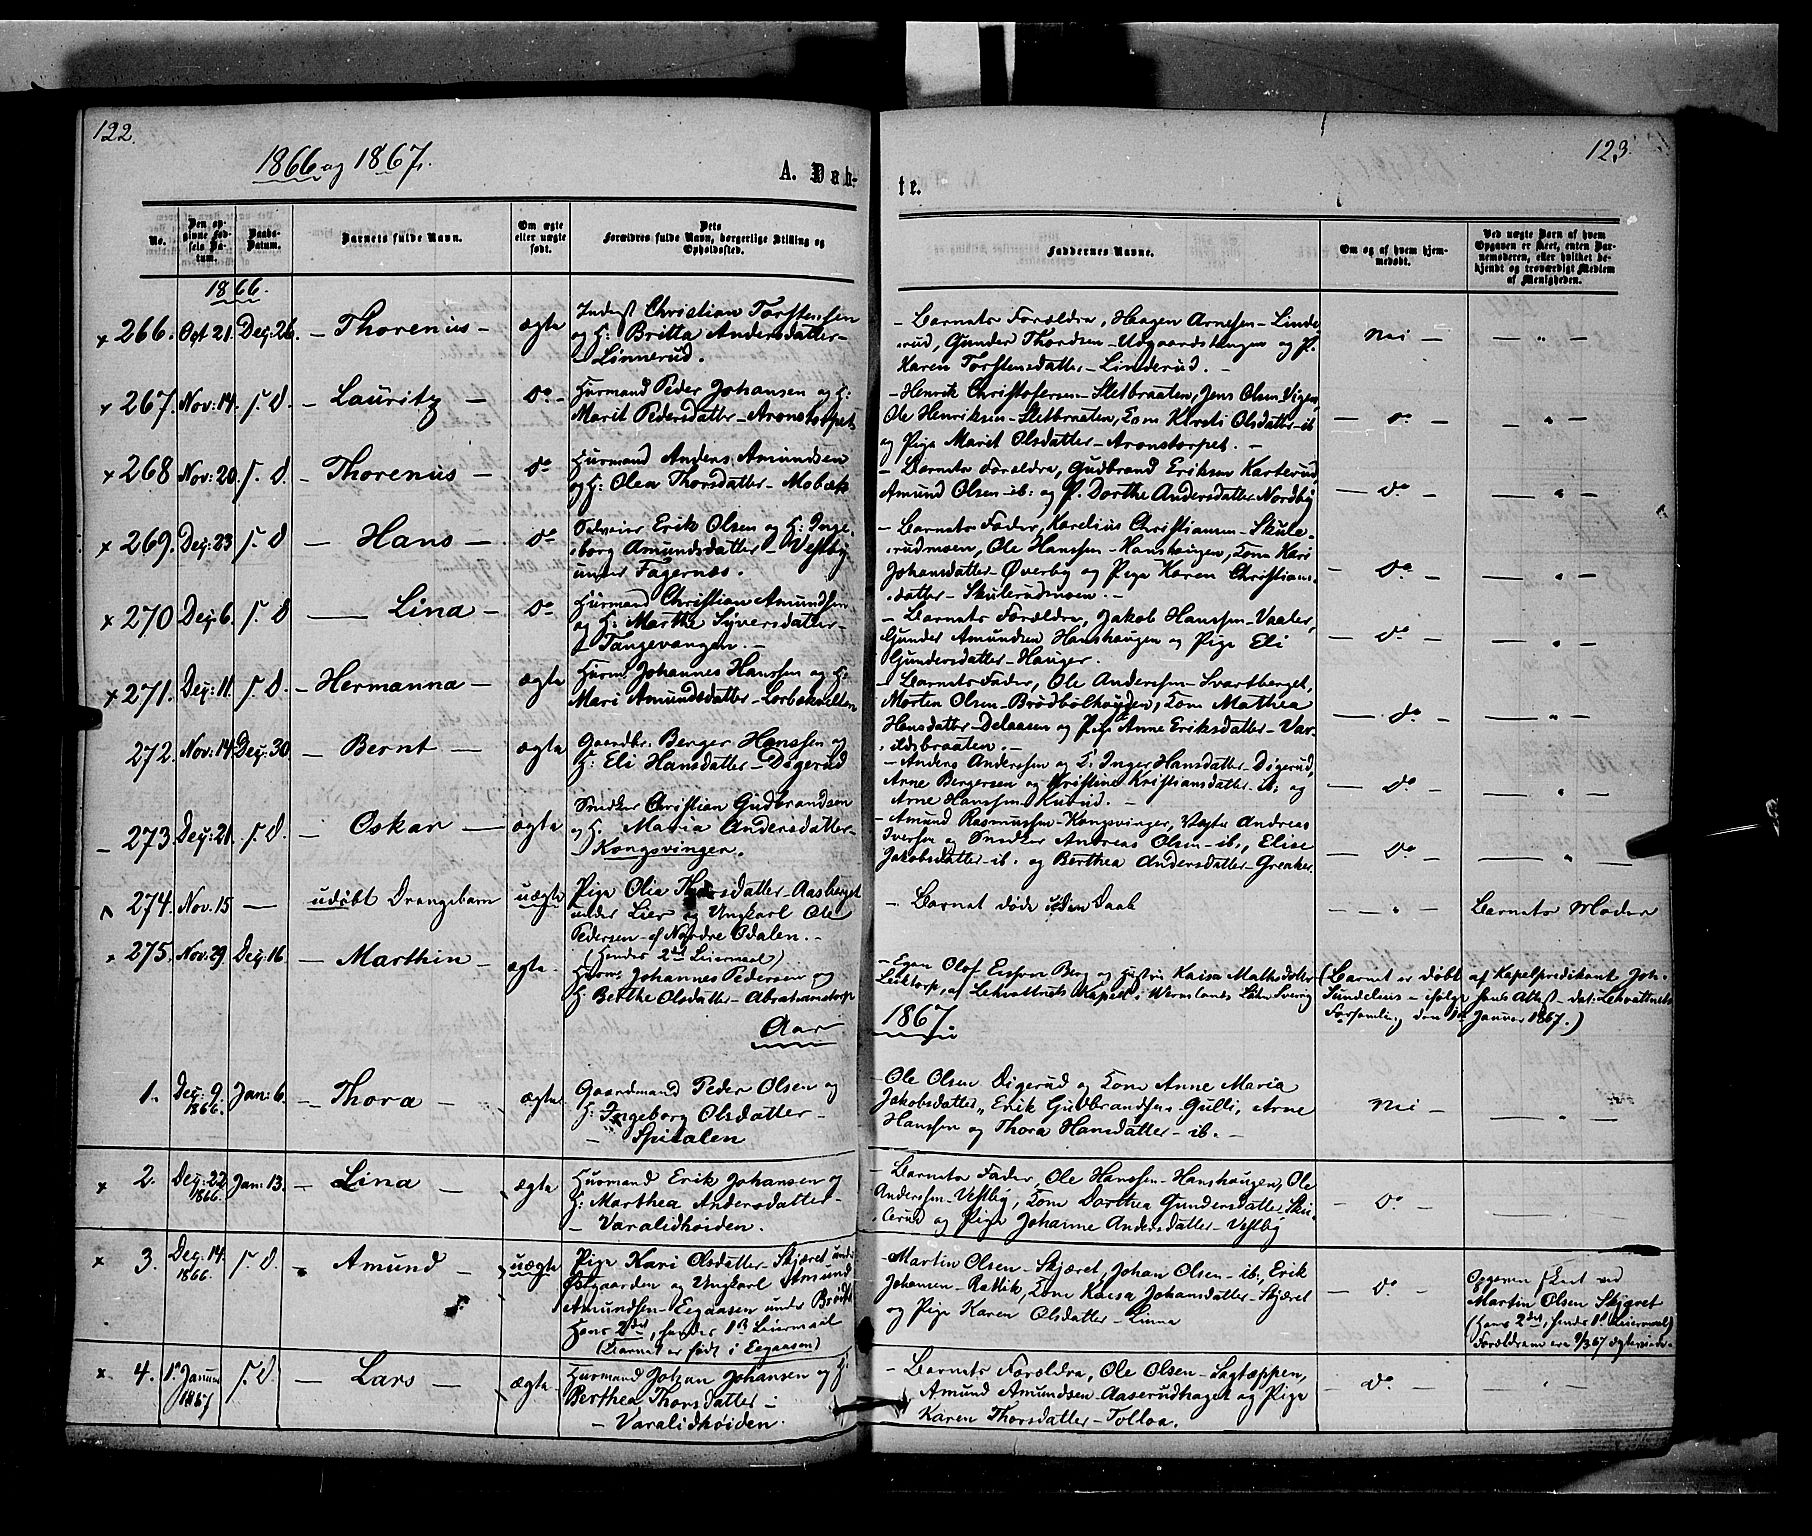 122.
1866 og 1867.
A. Døb-
No.
Den opgivne Fødsels Datum.
Daabs-Datum.
Barnets fulde Navn.
Om ægte eller uægte født.
Dets Forældres fulde Navn, borgerlige Stilling og Opholdssted.
1866.
266. Oct 21. Dec. 26. – Thorenius – ægte
Inderst Christian Torstensen
og H. Britta Andersdatter –
– Linnerud.
267. Nov: 14. s. D. – Lauritz – do –
Husmand Peder Johansen og H:
Marit Pedersdatter – Aronstorpet
268 Nov: 20. s. D. – Thorenius – do
Husmand Anders Amundsen
og H: Olea Thorsdatter – Mobæk
269. Dec: 23 s. D – Hans – do
Selveier Erik Olsen og H: Inge-
borg Amundsdatter – Vestby
under Fagernæs.
270 Dec: 6. s. D – Lina – do
Husmand Christian Amundsen
og H: Marthe Syversdatter –
Tangevangen. –
271. Dec: 11. s. D. – Hermanna – ægte
Husm. Johannes Hanssen og H:
Mari Amundsdatter –
272. Nov: 14. Dec. 30. – Bernt – ægte
Gaardbr. Berger Hanssen og
H: Eli Hansdatter – Digerud
273. Dec: 21. s. D. – Oskar – ægte
Snedker Christian Gudbrandsen
og H. Maria Andersdatter –
Kongsvinger.
274. Nov. 15 – udøbt Drengebarn uægte
Pige Olia Thorsdatter – Aasberget
under Lier og Ungkarl Ole
Pedersen – af Nordre Odalen. –
(Hendes 2det Leiermaal)
275. Nov: 29 Dec: 16. – Marthin – ægte –
Husm. Johannes Pedersen og
H: Berthe Olsdatter – Abrahamstorp
Aar
1. Dec: 9. 1866. Jan: 6. – Thora – ægte
Gaardmand Peder Olsen og
H: Ingeborg Olsdatter –
– Spitalen
2. Dec: 22 1866. Jan: 13. – Lina – ægte
Husmand Erik Johansen og
H: Marthea Andersdatter –
– Varalidhøiden.
3. Dec: 14. 1866. s. D. – Amund – uægte
Pige Kari Olsdatter – Skjæret under
Østgaarden og Ungkarl Amund
Amundsen – Eegaasen under
Hans 2det, hendes 1ste Leiermaal
(Barnet er født i Eegaasen)
4. 1ste Januar 1867 s. D. – Lars – ægte
Husmand Johan Johansen og H:
Berthea Thorsdatter –
– Varalidhøiden.
123.
te.
Faddernes Navne.
Om og af hvem hjemmedøbt.
Ved uægte Børn af hvem Opgaven er skeet, enten Barnemoderen, eller hvilket bekjendt og troværdigt Medlem af Menigheden.
– Barnets Forældre, Haagen Arnesen – Linde-
rud, Gunder Thordsen – Udgaardshaugen og P.
Karen Torstensdatter – Linderud. –
Nei – „ –
– Henrik Christofersen – Sletbraaten, Jens Olsen Vigen,
Ole Henriksen – Sletbraaten, Kone Kirsti Olsdatter – ib
og Pige Marit Olsdatter – Aronstorpet. –
– do – „
– Barnets Forældre, Gudbrand Eriksen Karterud,
Amund Olsen – ib: og P. Dorthe Andersdatter Nordby
– do – „ –
– Barnets Fader, Karelius Christiansen – Skule-
rudmoen, Ole Hanssen – Hanshaugen, Kone Kari
Johansdatter – Øverby og Pige Karen Christians-
datter – Skulerudmoen. –
– do – „
– Barnets Forældre, Jakob Hanssen – Vaaler,
Gunder Amundsen Hanshaugen og Pige Eli
Gundersdatter – Hauger.
– do – „
– Barnets Fader, Ole Anderssen – Svartberget,
Morten Olsen – Brødbølhaugen, Kone Mathea
Hansdatter – Delaasen og Pige Anne Eriksdatter – Var-
aldsbraaten. –
– do – „ –
– Anders Anderssen og K. Inger Hansdatter – Digerud,
Arne Bergersen og Kristine Kristiansdatter – ib: og
Arne Hanssen – Kurud. –
– do – „
– Amund Rasmussen – Kongsvinger, Vægter Andreas
Iversen og Snedker Andreas Olsen – ib., Elise
Jakobsdatter – ib. og Berthea Andersdatter – Greaker.
– do – „ –
– Barnet døde uden Daab
– „ – Barnets Moder
– Egen Olof Ersson Berg og hustru Kaisa Mathsdotter
Lecktorp, af Lekvattnets Kapell i Wermlands Län Sverig
(Barnet er døbt af Kapelpredikant Joh.
Sundelius – ifølge hans Attest – dat: Lekvattnets
Forsamling den 1ste Januar 1867.)
1867.
– Ole Olsen Digerud og Kone Anne Maria
Jakobsdatter, Erik Gudbrandsen Gulli, Arne
Hanssen og Thora Hansdatter – ib. –
Nei – „ –
– Barnets Fader, Ole Hanssen – Hanshaugen, Ole
Anderssen – Vestby, Kone Dorthea Gundersdatter – Sku-
lerud og Pige Johanne Andersdatter – Vestby
do – „
– Martin Olsen – Skjæret, Johan Olsen – ib:, Erik
Johansen – Rattik, Kone Kaisa Johansdatter – Skjæret
og Pige Karen Olsdatter – Linna
– do –
Opgaven skeet ved
Martin Olsen Skjæret
(Hans 2det, hendes 1ste Leiermaal)
Forældrene ere 9/3 67
– Barnets Forældre, Ole Olsen – Sagtæppen,
Amund Amundsen – Aaserudhaget og Pige
Karen Thorsdatter – Tolloa.
– do – „ –